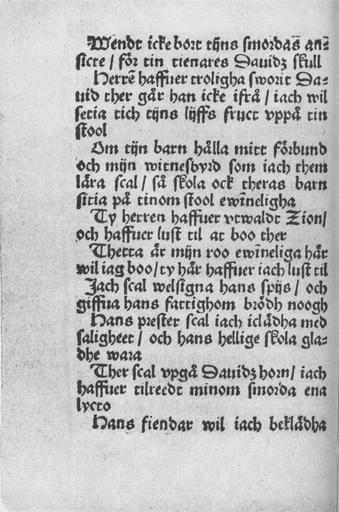 Wendt icke bort tijns smordas an-
sicte / för tin tienares Dauidz skull
Herrē haffuer troligha sworit Da-
uid ther går han icke ifrå / iach wil
setia tich tijns lijffs fruct vppå tin
stool
Om tijn barn hålla mitt förbund
och mijn witnesbyrd som iach them
lära scal / så skola ock theras barn
sitia på tinom stool ewīneligha
Ty herren haffuer vtwaldt Zion /
och haffuer lust til at boo ther
Thetta är mijn roo ewīneliga här
wil iag boo / ty här haffuer iach lust til
Jach scal welsigna hans spijs / och
giffua hans fattighom brödh noogh
Hans prester scal iach iclädha med
saligheet / och hans hellige skola gla-
dhe wara
Ther scal vpgå Dauidz horn / iach
haffuer tilreedt minom smorda ena
lycto
Hans fiendar wil iach beklädha